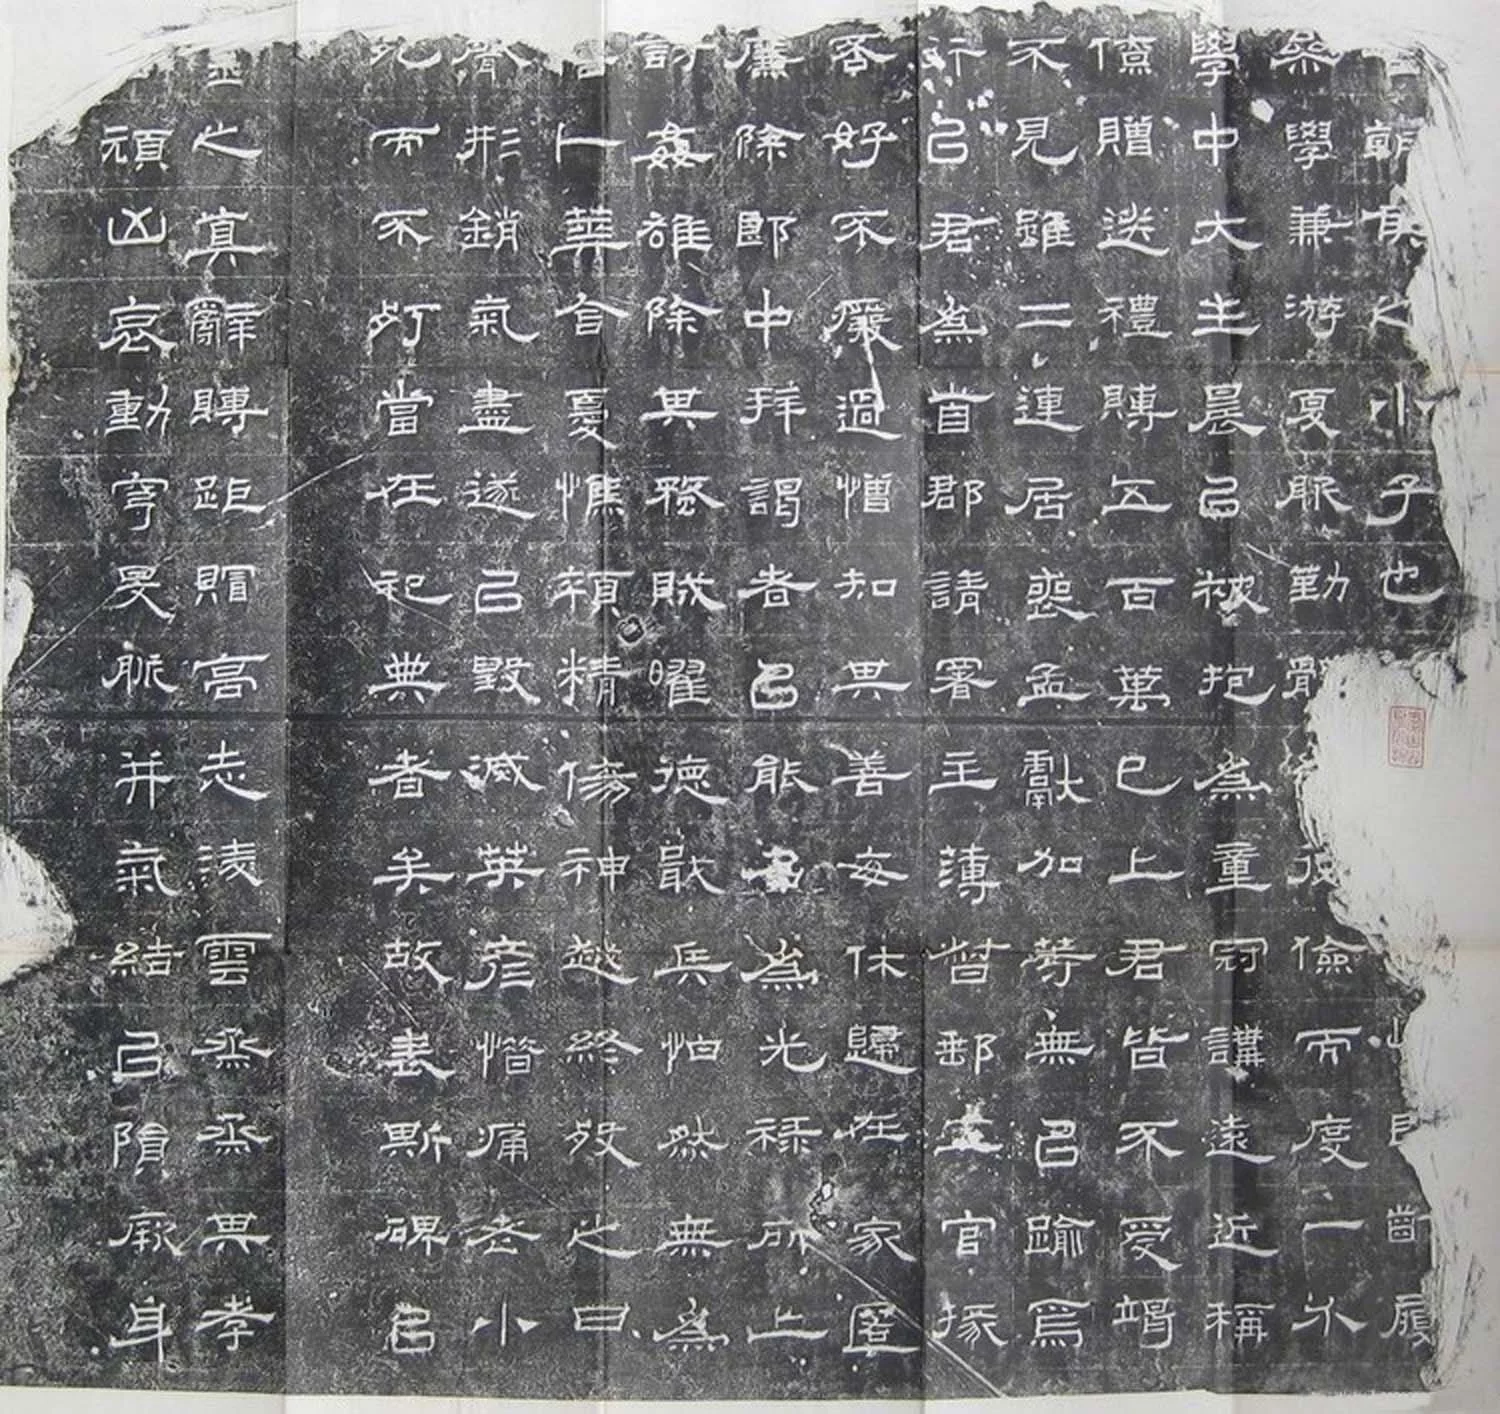 朝侯之小子也齒履
學兼游夏服勤體儉而度一介不
學中大主晨以被抱爲童冠講遠近稱
僚贈送禮賻五百萬已上君皆不受竭
不見雖二連居喪孟獻加等無以踰焉
行己君爲首郡請署主薄督郵五官掾
否好不廢過憎知其善每休歸在家匿
廉除郎中拜謁者以能名爲光祿所上
討姦雄除其蝥賊曜德戢兵怕然無爲
華合憂憔顇精傷神越終歿之日
形銷氣盡遂以毀滅英彦惜痛老小
死而不朽當在祀典者矣故表斯碑以
之真辭賻距賵高志淩雲烝烝其孝
頑凶哀動穹旻脈并氣結以隕厥身